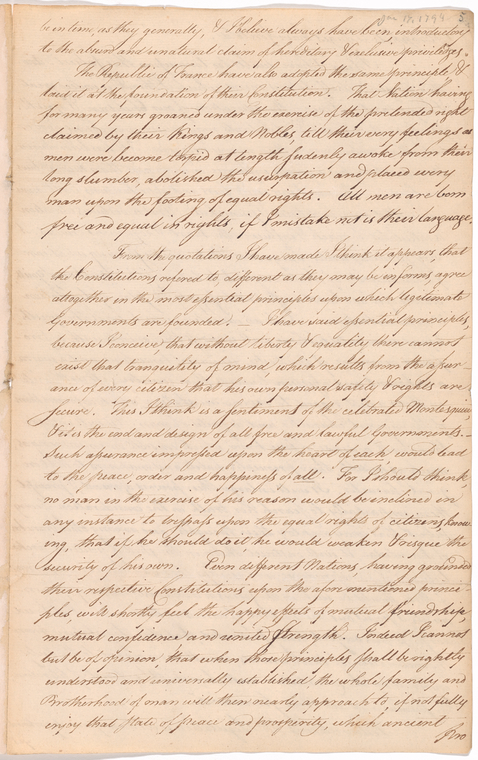 Jan 17, 1794 5.
be in time, as they generally, & I believe always have been introductory
to the absurd and unnatural claim of hereditary & exclusive privileges.
The Republic of France have also adopted the same principle, &
laid it at the foundation of their Constitution. That Nation having
for many years groaned under the exercise of the pretended right
claimed by their Kings and Nobles till their very feelings as
men were become torpid at length sudenly awoke from their
long slumber, abolished the usurpation and placed every
man upon the footing of equal rights. All men are born
free and equal in rights, if I mistake not is their language.
From the quotations I have made I think it appears that
the Constitutions refered to, different as they may be in forms, agree
altogether in the most essential principles upon which legitimate
Governments are founded. — I have said essential principles,
because I conceive, that without liberty & equality there cannot
exist that tranquility of mind, which results from the assur-
ance of every citizen that his own personal safety & rights are
secure. This I think is a sentiment of the celebrated Montesquieu,
& it is the end and design of all free and lawful Governments.—
Such assurance impressed upon the heart of each, would lead
to the peace, order and happiness of all. For I should think,
no man in the exercise of his reason would be inclined in
any instance to trespass upon the equal rights of citizens, know-
ing, that if he should do it, he would weaken & risque the
security of his own. Even different Nations, having grounded
their respective Constitutions upon the afore-mentioned princi-
ples, will shortly feel the happy effects of mutual friendship,
mutual confidence and united strength. Indeed I cannot
but be of opinion, that when those principles shall be rightly
understood and universally established, the whole family and
Brotherhood of man will then nearly approach to, if not fully
enjoy that state of peace and prosperity, which ancient